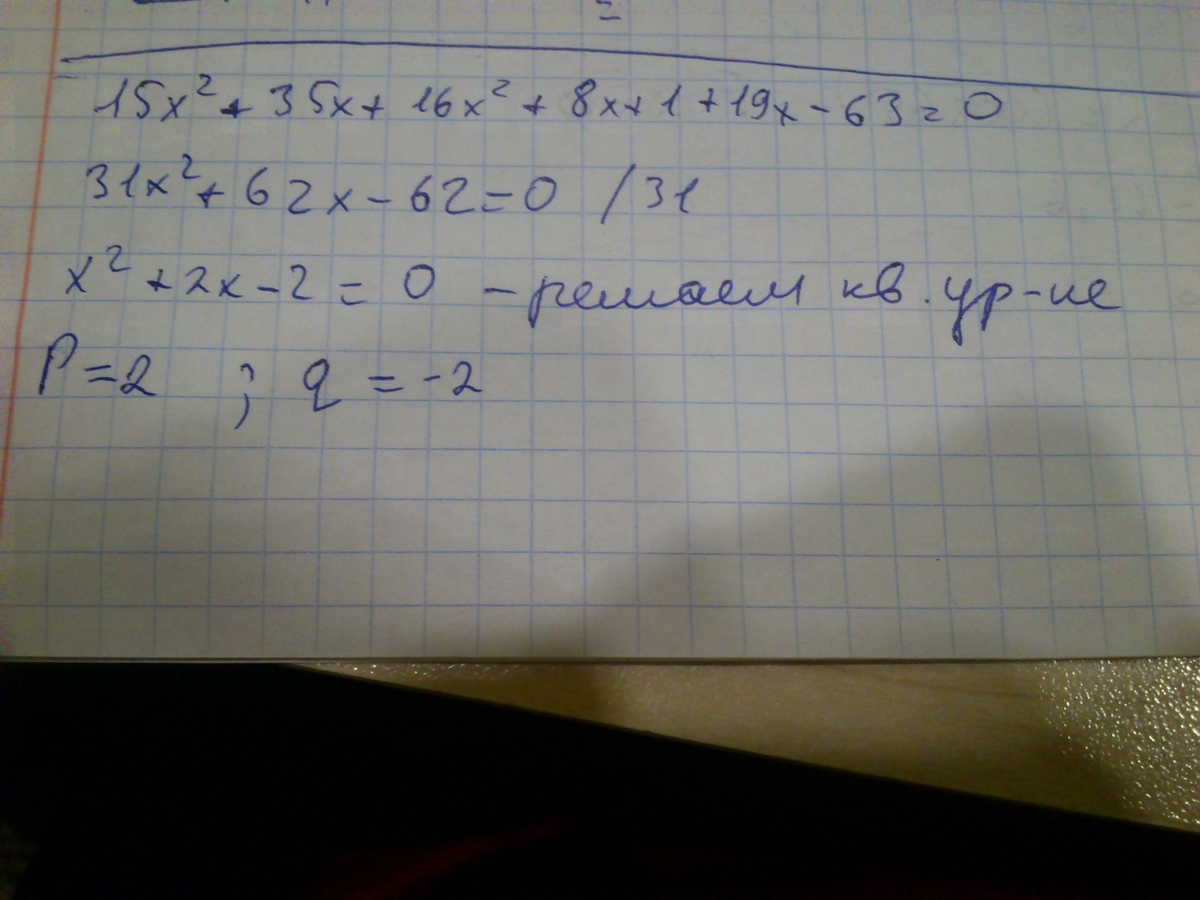 15x² + 35x + 16x² + 8x + 1 + 19x - 63 = 0
31x² + 62x - 62 = 0 /31
x² + 2x - 2 = 0 - решаем кв. ур-ие
P = 2 ; q = -2